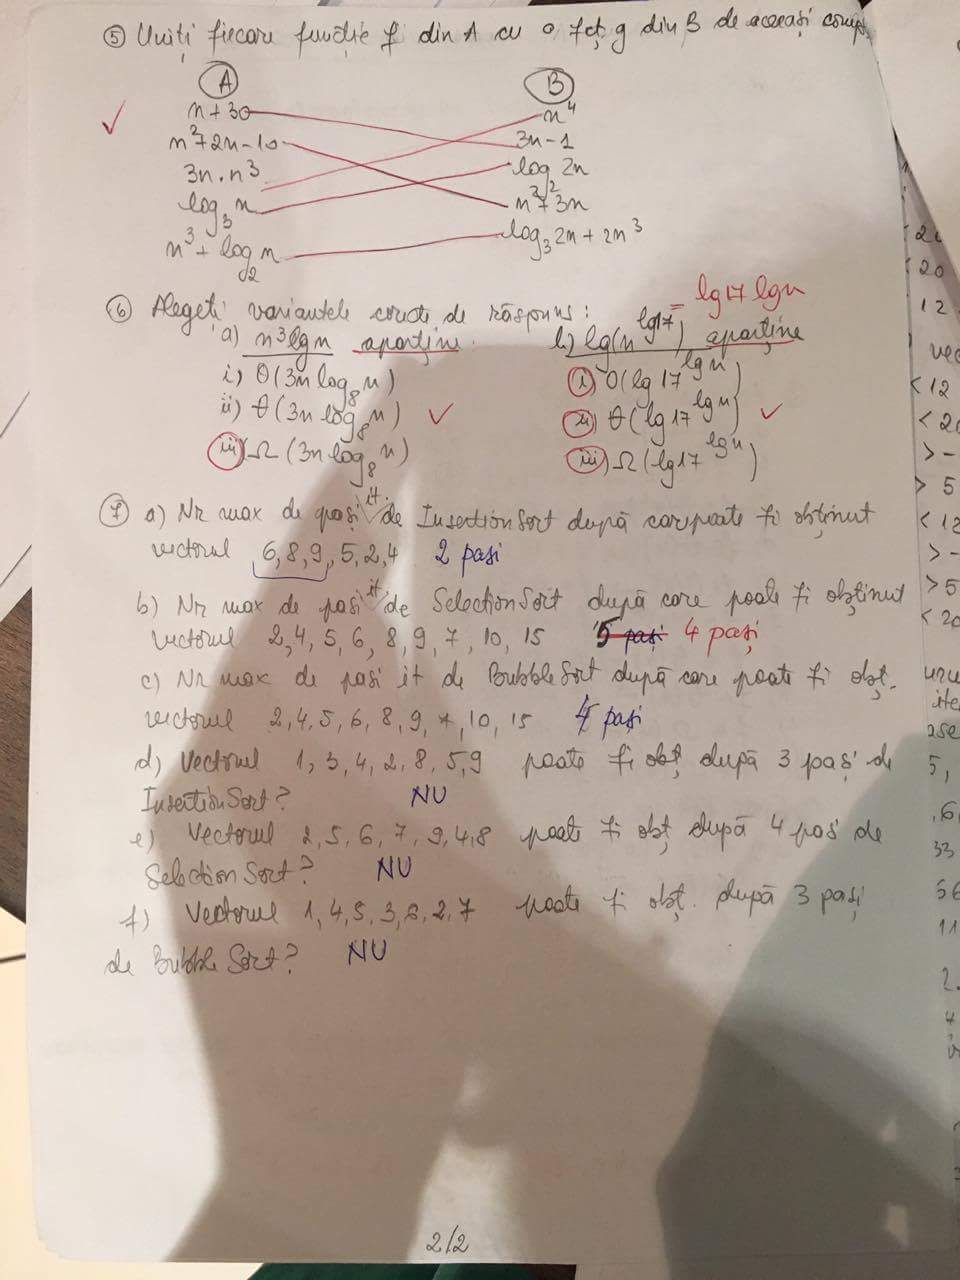 ⑤ Uniți fiecare funcție f din A cu o fct g din B de aceeași comp.
A B
n + 30 n⁴
n² + 2n - 10 3n - 1
3n · n³ log₂ 2n
log₃ n n² + 3n
n³ + log₂ n log₃ 2n + 2n³
⑥ Alegeți variantele corecte de răspuns: = lg17 lgn
a) n³lgn aparține b) lg(n^lg17) aparține
i) O(3n log₈ n) i) O(lg 17^lg n)
ii) θ(3n log₈ n) ii) θ(lg 17^lg n)
iii) Ω(3n log₈ n) iii) Ω(lg 17^lg n)
⑦ a) Nr max de pași it de InsertionSort după care poate fi obținut
vectorul 6, 8, 9, 5, 2, 4 2 pași
b) Nr max de pași it de SelectionSort după care poate fi obținut
vectorul 2, 4, 5, 6, 8, 9, 7, 10, 15 5 pași 4 pași
c) Nr max de pași it de BubbleSort după care poate fi obț.
vectorul 2, 4, 5, 6, 8, 9, 7, 10, 15 4 pași
d) Vectorul 1, 3, 4, 2, 8, 5, 9 poate fi obț după 3 pași de
InsertionSort? NU
e) Vectorul 2, 5, 6, 7, 9, 4, 8 poate fi obț după 4 pași de
SelectionSort? NU
f) Vectorul 1, 4, 5, 3, 2, 7 poate fi obț. după 3 pași
de BubbleSort? NU
2/2